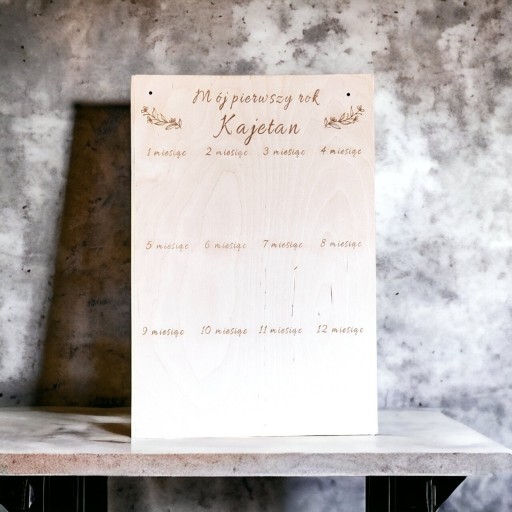 Mój pierwszy rok
Kajetan
1 miesiąc 2 miesiąc 3 miesiąc 4 miesiąc
5 miesiąc 6 miesiąc 7 miesiąc 8 miesiąc
9 miesiąc 10 miesiąc 11 miesiąc 12 miesiąc